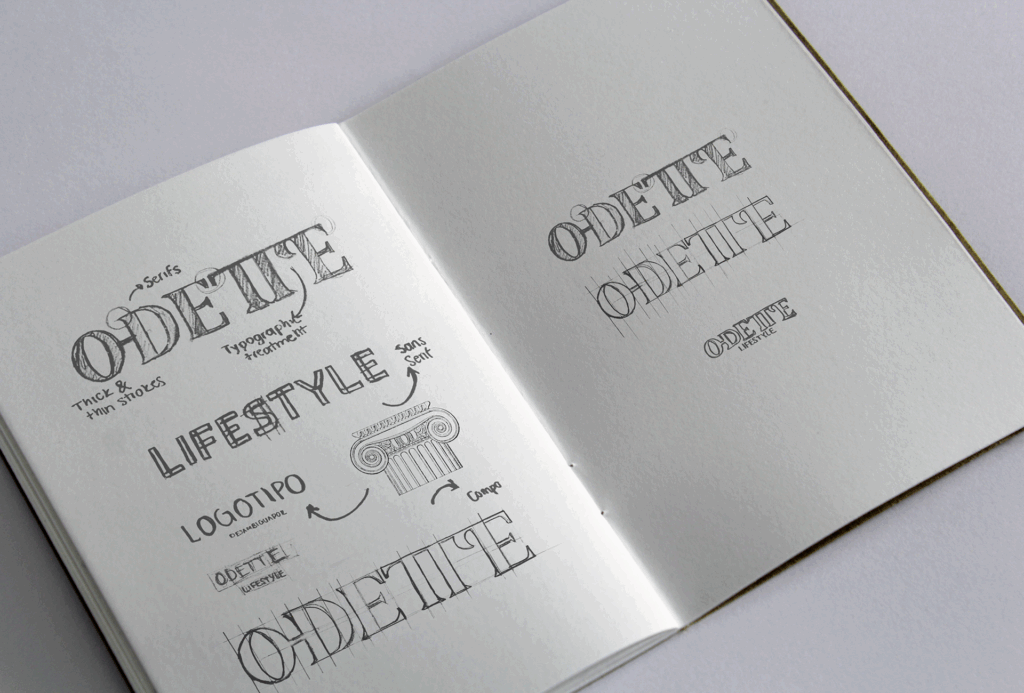 Serifs
ODETTE
Typographic
treatment
Thick &
thin strokes
Sans
Serif
LIFESTYLE
LOGOTIPO
DESAMBIGUADOR
Campo
ODETTE
LIFESTYLE
ODETTE
ODETTE
ODETTE
ODETTE
LIFESTYLE